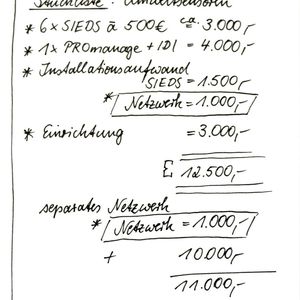 Stückliste: Umweltsensoren
* 6x SIEDS ā 500€ ca. = 3.000,-
* 1x PROmanage + IDI = 4.000,-
* Installationsaufwand
SIEDS = 1.500,-
* Netzwerk = 1.000,-
* Einrichtung = 3.000,-
Σ 12.500,-
separates Netzwerk
* Netzwerk = 1.000,-
+ 10.000,-
11.000,-